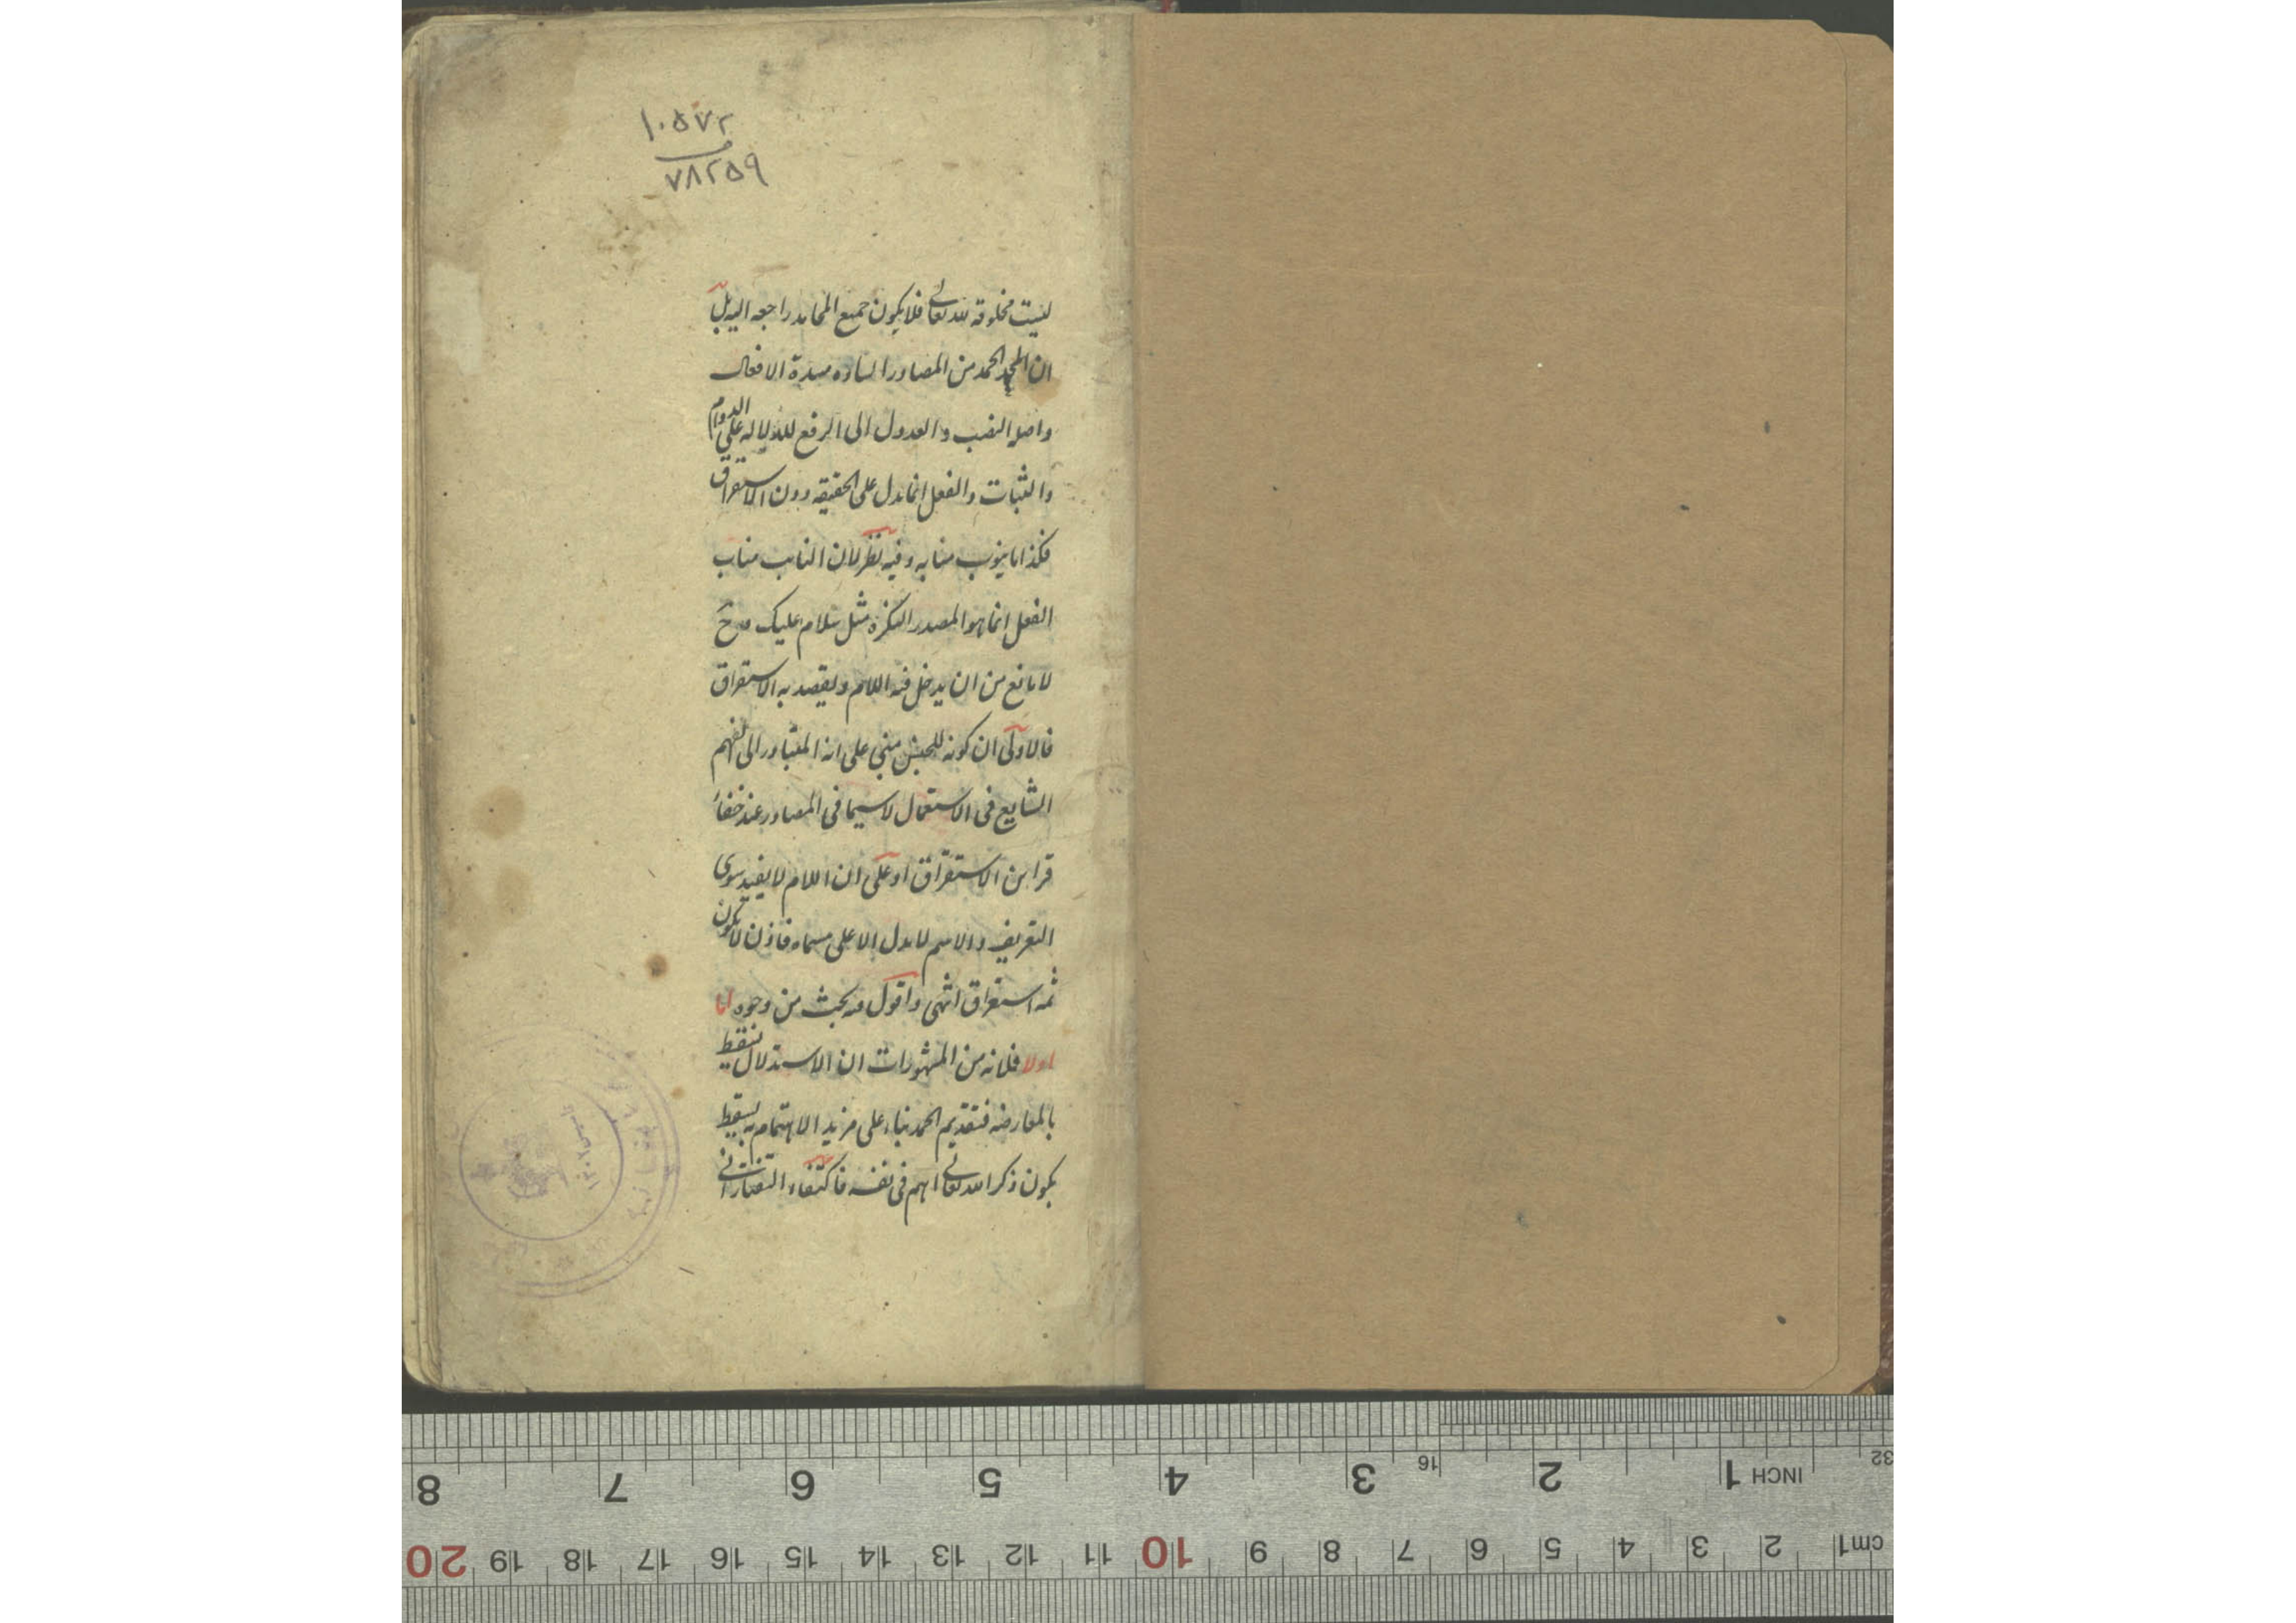 ١٠٥٧٢
٧٨٢٥٩
ليست مخلوقه لله تعالى فلا يكون جميع المحامد راجعه اليه بل
ان الحمد من المصادر الساده مسدة الافعال
واصله النصب والعدول الى الرفع للدلاله على الدوام
والثبات والفعل انما يدل على الحقيقه دون الاستغراق
فكذا ما ينوب منابه وفيه نظر لان النايب مناب
الفعل انما هو المصدر النكرة مثل سلام عليك وح
لا مانع من ان يدخل فيه اللام ويقصد به الاستغراق
فالاولى ان كونه للجنس مبني على انه المتبادر الى الفهم
الشايع في الاستعمال لا سيما في المصادر عند خفاء
قراين الاستغراق او على ان اللام لا يفيد سوى
التعريف والاسم لا يدل الا على مسماه فاذن لا يكون
ثمه استغراق انتهى واقول فيه بحث من وجوه اما
اولا فلانه من المشهورات ان الاستدلال يسقط
بالمعارضه فتقديم الحمد بناء على مزيد الاهتمام به يسقط
بكون ذكر الله تعالى اهم في نفسه فاكتفاء التفتازاني
8 7 6 5 4 3 16 2 1 INCH 32
20 19 18 17 16 15 14 13 12 11 10 9 8 7 6 5 4 3 2 1 cm